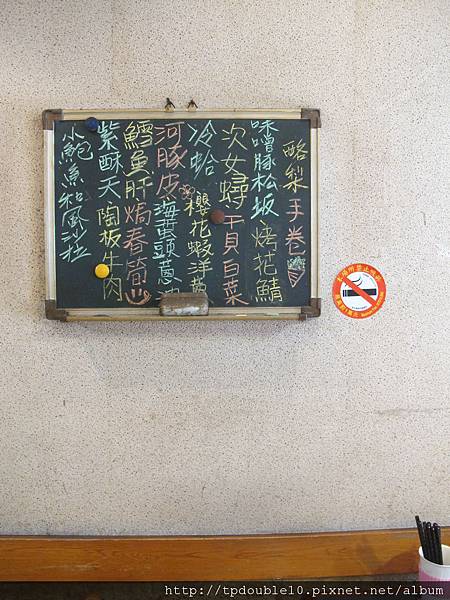 酪梨手卷
味噌豚松坂 烤花鯖
次女蟳 干貝白菜
冷蛤 櫻花蝦洋蔥
河豚皮 海蜇頭蔥油
鱈魚肝 燒春筍
紫酥天 陶板牛肉
小鮑魚和風沙拉
本場所禁止吸菸
http://tpdouble10.pixnet.net/album